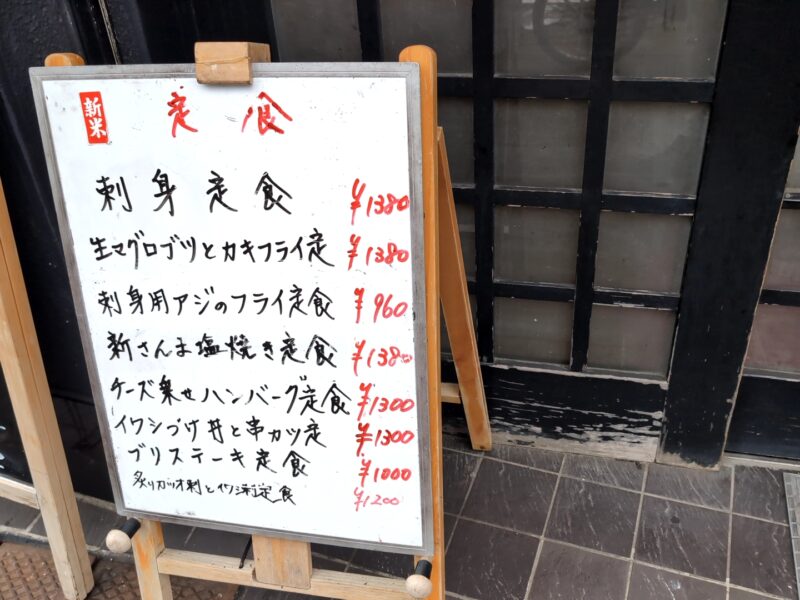 新米
定食
刺身定食 ¥1380
生マグロブツとカキフライ定 ¥1380
刺身用アジのフライ定食 ¥960
新さんま塩焼き定食 ¥1380
チーズ乗せハンバーグ定食 ¥1300
イワシづけ丼と串カツ定 ¥1300
ブリステーキ定食 ¥1000
炙りカツオ刺とイワシ刺定食 ¥1200